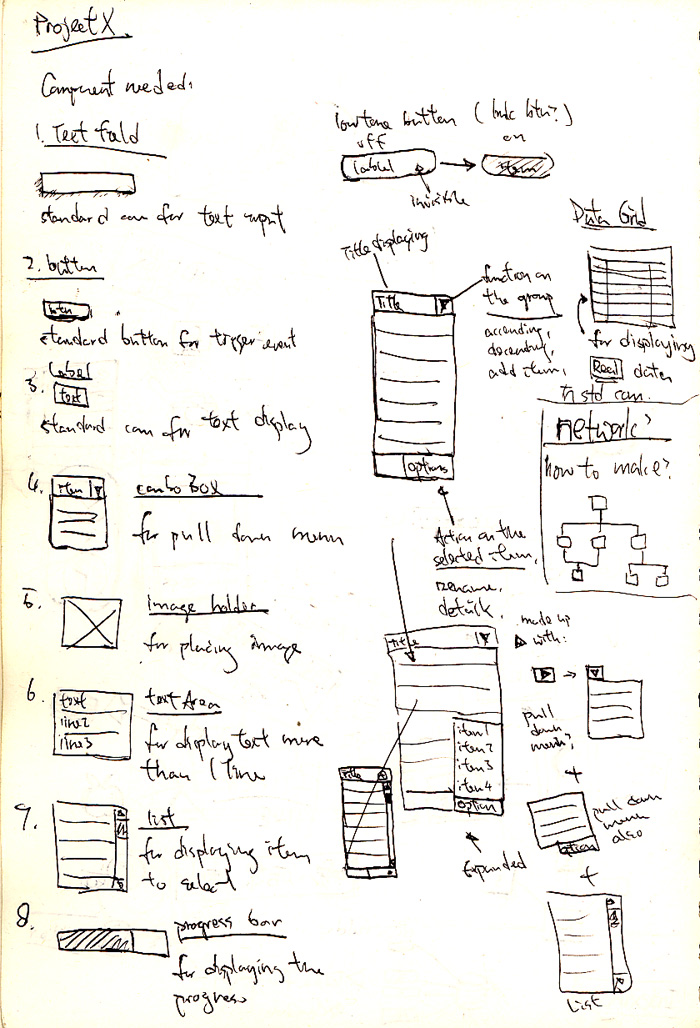 Project X
Component needed:
1. Text field
standard com for text input
2. button
btn
standard button for trigger event
Label
3.
text
standard com for text display
4.
item
combo Box
for pull down menu
5.
image holder
for placing image
6.
text
line2
line3
text Area
for display text more
than 1 line
7.
list
for displaying item
to select
8.
progress bar
for displaying the
progress
button (
off
on
label
invisible
Title displaying
Title
function on
the group
accending,
decending,
add item,
options
Action on the
selected item,
rename,
detail.
Data Grid
for displaying
Real data
std com.
network?
how to make?
title
item1
item2
item3
item4
option
Title
Expanded
made up
with:
pull
down
menu,
+
pull down
menu
also
option
+
List